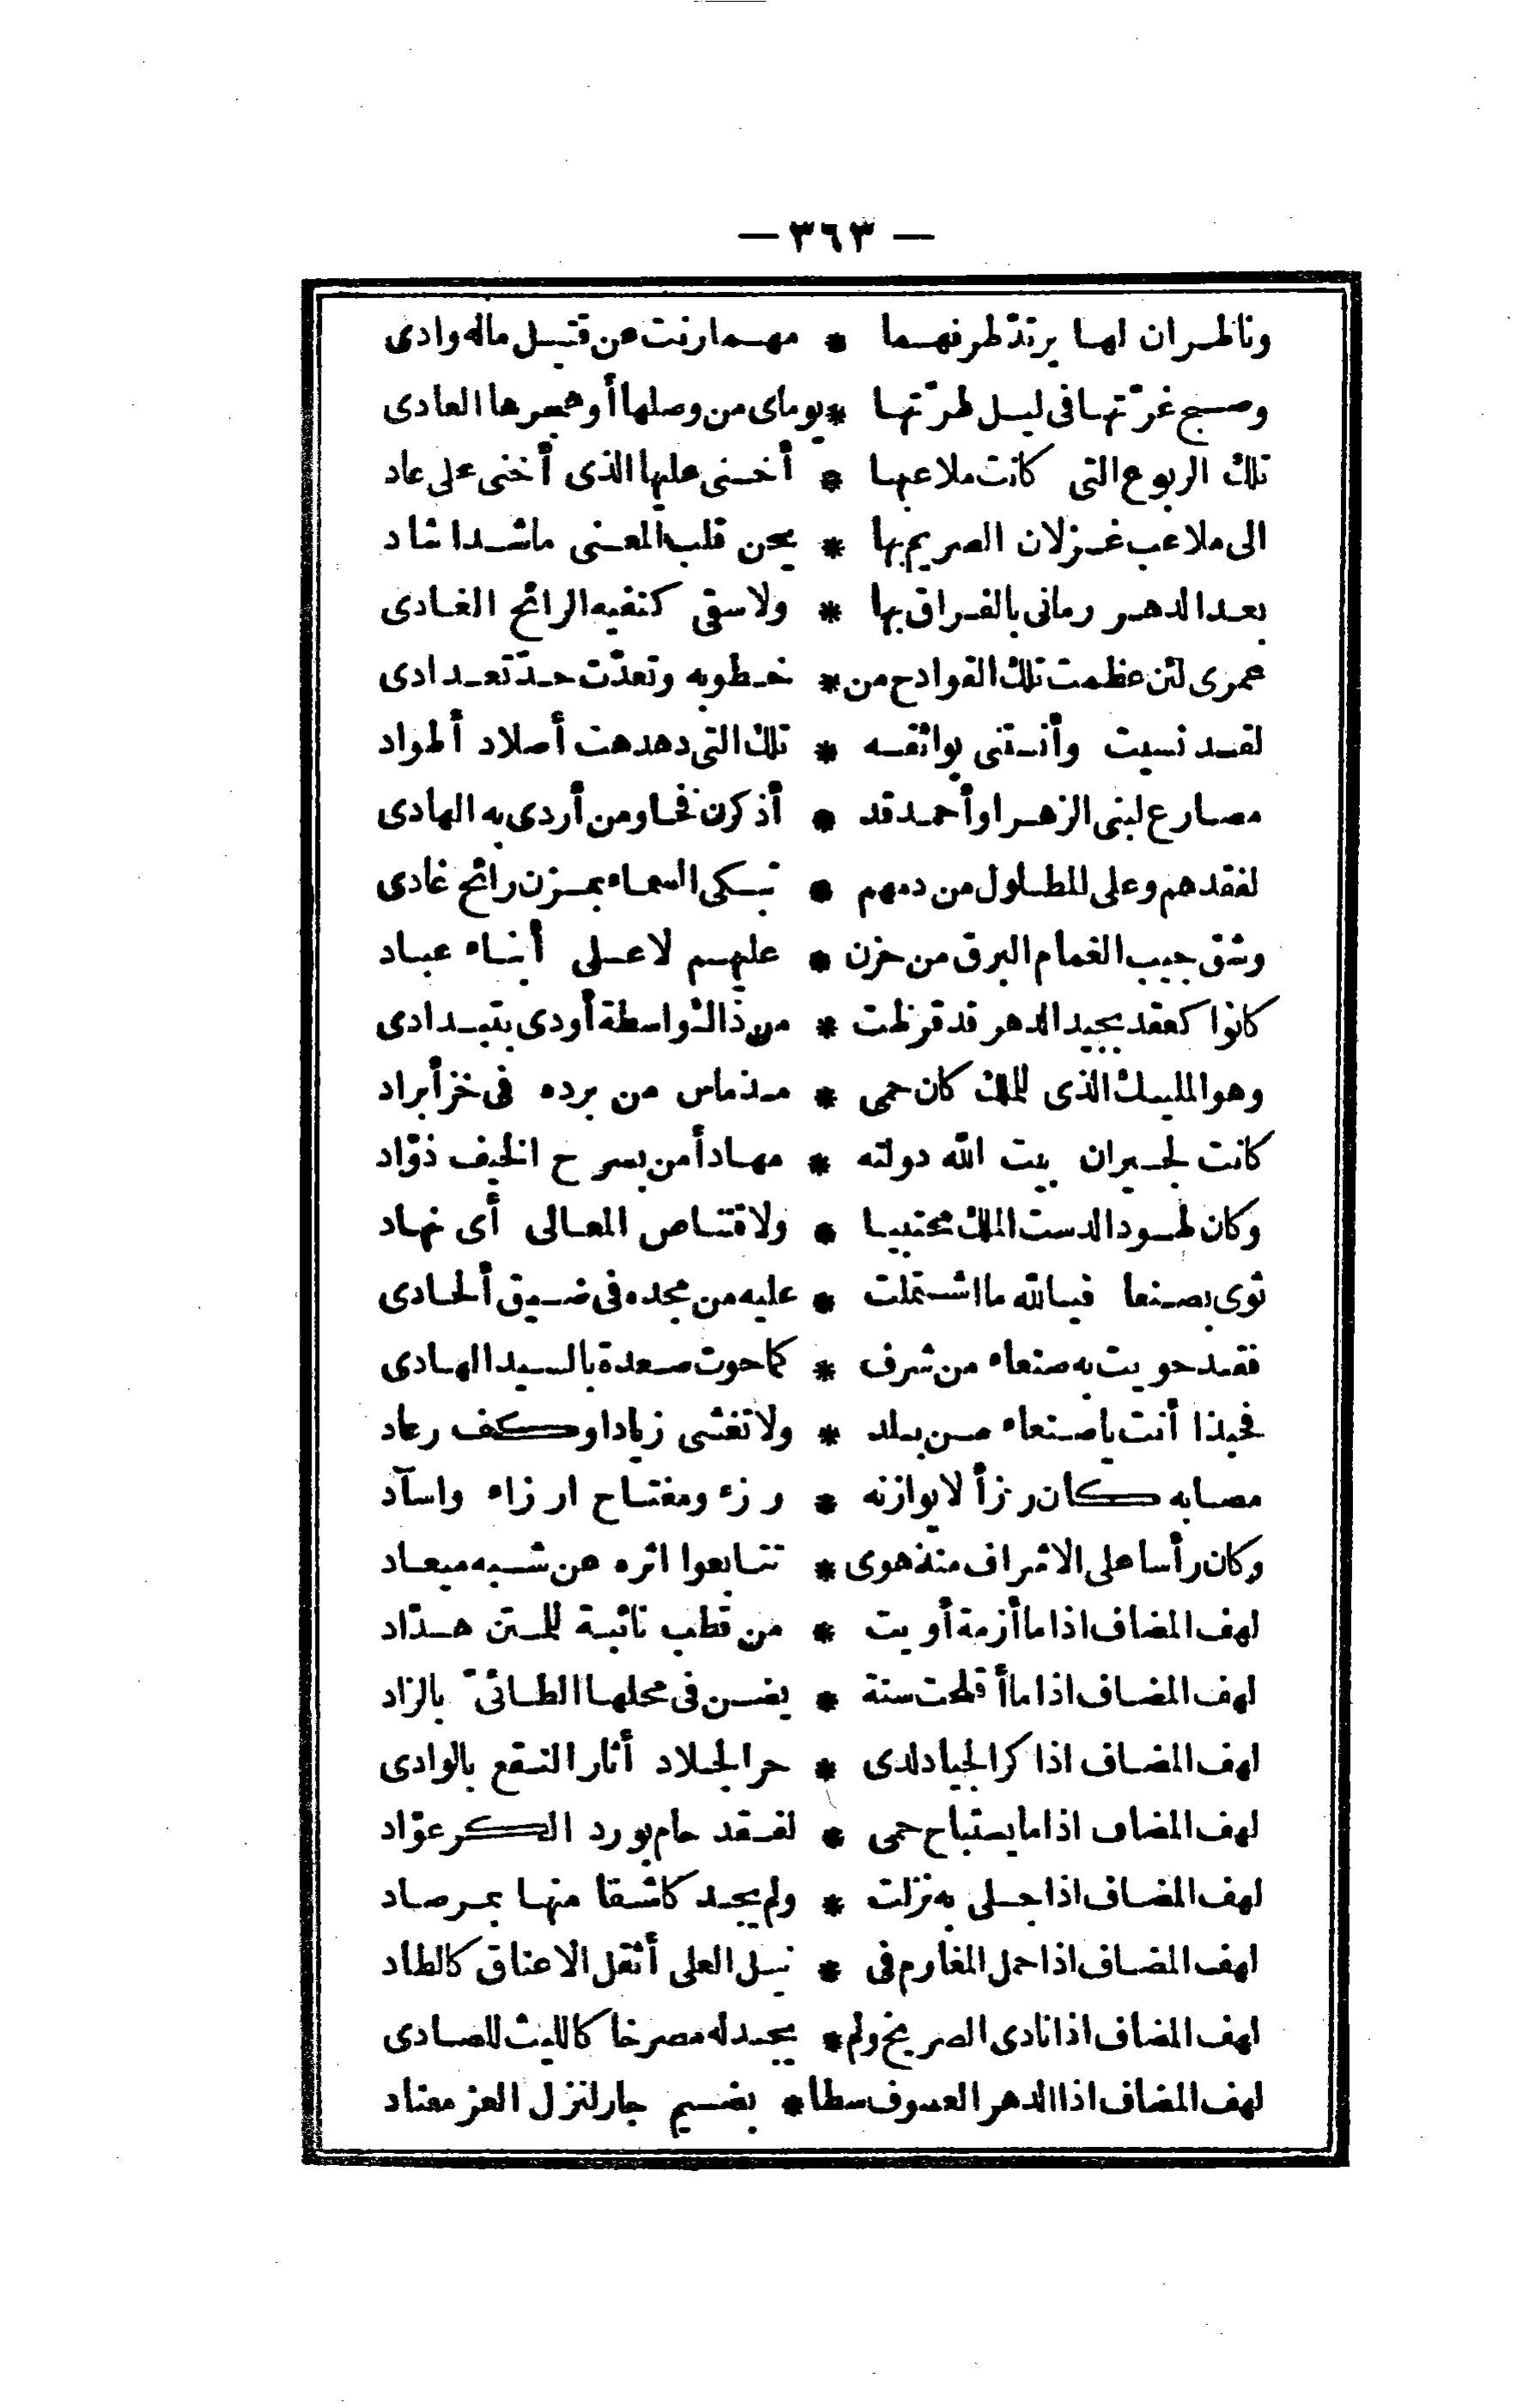 — ٣٦٣ —
وناظران لها يرتد طرفهما * مهما رنت عن قتيل ماله وادى
وصبح غرّتها فى ليل طرّتها * يوماى من وصلها أو هجرها العادى
تلك الربوع التى كانت ملاعبها * أخنى عليها الذى أخنى على عاد
الى ملاعب غزلان الصريم بها * يحن قلب المعنى ما شدا شاد
بعدا لدهر رمانى بالفراق بها * ولا سقى كنفيه الرائح الغادى
عمرى لئن عظمت تلك القوادح من * خطوبه وتعدّت حدّ تعدادى
لقد نسيت وأنستنى بوائقه * تلك التى دهدهت أصلاد أطواد
مصارع لبنى الزهرا وأحمد قد * أذكرن فخا ومن أردى به الهادى
لفقدهم وعلى المطلول من دمهم * تبكى السماء بمزن رائح غادى
وشق جيب الغمام البرق من حزن * عليهم لا على أبناء عباد
كانوا كعقد بجيد الدهر قد قرظت * من ذاك واسطة أودى بتبدادى
وهو المليك الذى للملك كان حمى * مذ ماس من برده فى خز أبراد
كانت لجيران بيت الله دولته * مهاد أمن بسرح الخيف ذوّاد
وكان طود الدست الملك محتبيا * ولاقتناص المعالى أى نهاد
ثوى بصنعا فيالله ما اشتملت * عليه من مجده فى ضيق ألحادى
فقد حويت به صنعاء من شرف * كما حوت صعدة بالسيد الهادى
فحبذا أنت يا صنعاء من بلد * ولا تغشى زيادا وكف رعاد
مصابه كان رزأ لا يوازنه * رزء ومفتاح ارزاء واسآد
وكان رأسا على الاشراف منذ هوى * تتابعوا اثره عن شبه ميعاد
لهف المضاف اذا ما أزمة أويت * من قطب نائبة للمتن هدّاد
لهف المضاف اذا ما أقلحت سنة * يضن فى محلها الطائىّ بالزاد
لهف المضاف اذا كر الجياد لدى * حر الجلاد أثار النقع بالوادى
لهف المضاف اذا ما يستباح حمى * لفقد حام بورد الكر عوّاد
لهف المضاف اذا جلى به نزلت * ولم يجد كاشفا منها بمرصاد
لهف المضاف اذا حمل المغارم فى * نيل العلى أثقل الاعناق كالطاد
لهف المضاف اذا نادى الصريخ ولم * يجد له مصرخا كالليث للصادى
لهف المضاف اذا الدهر العسوف سطا * بضيم جار لنزل العز معتاد